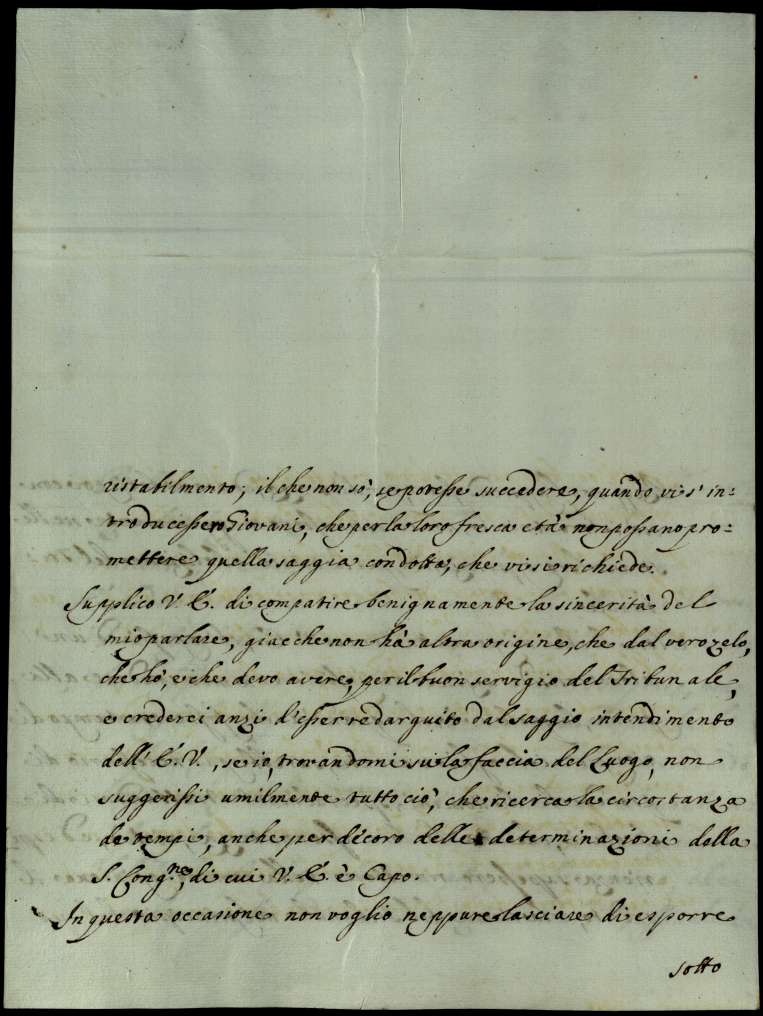 ristabilmento; il che non sò, se potesse succedere, quando vi s' in=
troducessero Giovani, che per la loro fresca età non possano pro=
mettere quella saggia condotta, che vi si richiede.
Supplico V. E. di compatire benignamente la sincerità del
mio parlare, giacche non hà altra origine, che dal vero zelo,
che hò, e che devo avere, per il buon servigio del Tribunale,
e crederei anzi d'esser redarguito dal saggio intendimento
dell' E. V., se io, trovandomi su la faccia del Luogo, non
suggerissi umilmente tutto ciò, che ricerca la circostanza
de tempi, anche per decoro delle determinazioni della
S. Cong.ne, di cui V. E. è Capo.
In questa occasione non voglio neppure lasciare di esporre
sotto